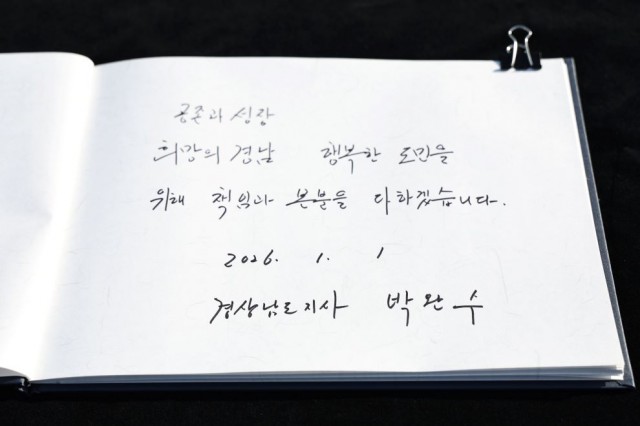 공존과 성장
희망의 경남 행복한 도민을
위해 책임과 본분을 다하겠습니다.
2026. 1. 1
경상남도지사 박완수